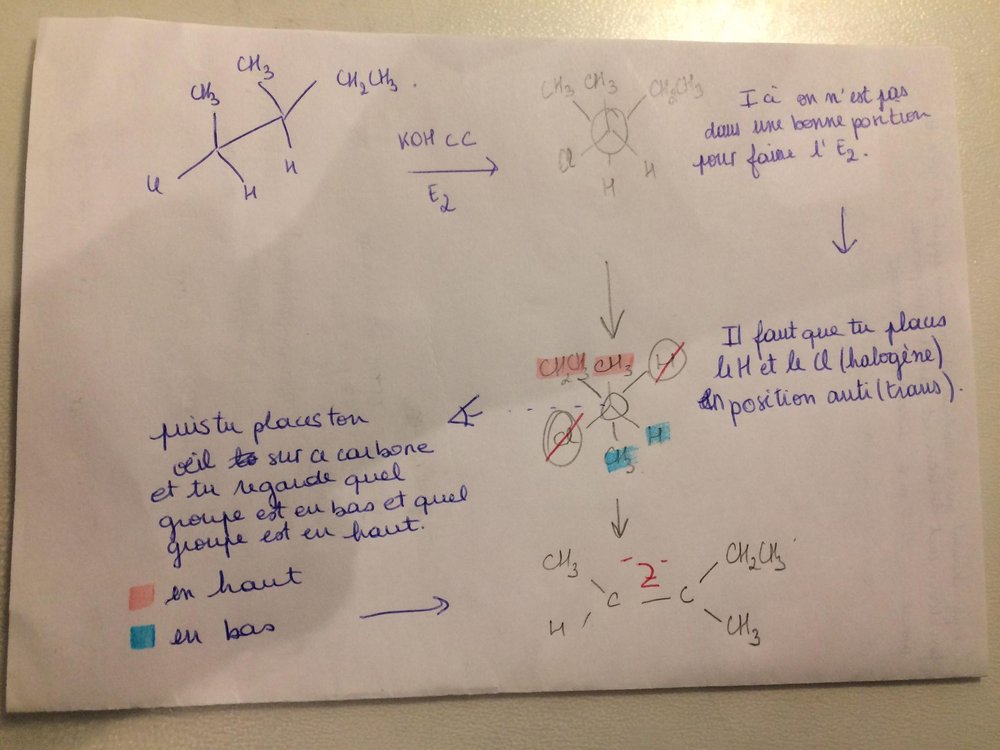 CH3
CH3
CH2CH3.
Cl
H
H
KOH CC
E2
CH3 CH3 CH2CH3
Cl
H
H
Ici on n'est pas
dans une bonne position
pour faire l'E2.
Il faut que tu places
le H et le Cl (halogène)
en position anti (trans).
CH2CH3 CH3 H
Cl
H
CH3
puis tu places ton
oeil sur ce carbone
et tu regarde quel
groupe est en bas et quel
groupe est en haut.
en haut
en bas
CH3
CH2CH3
Z
C
C
H
CH3